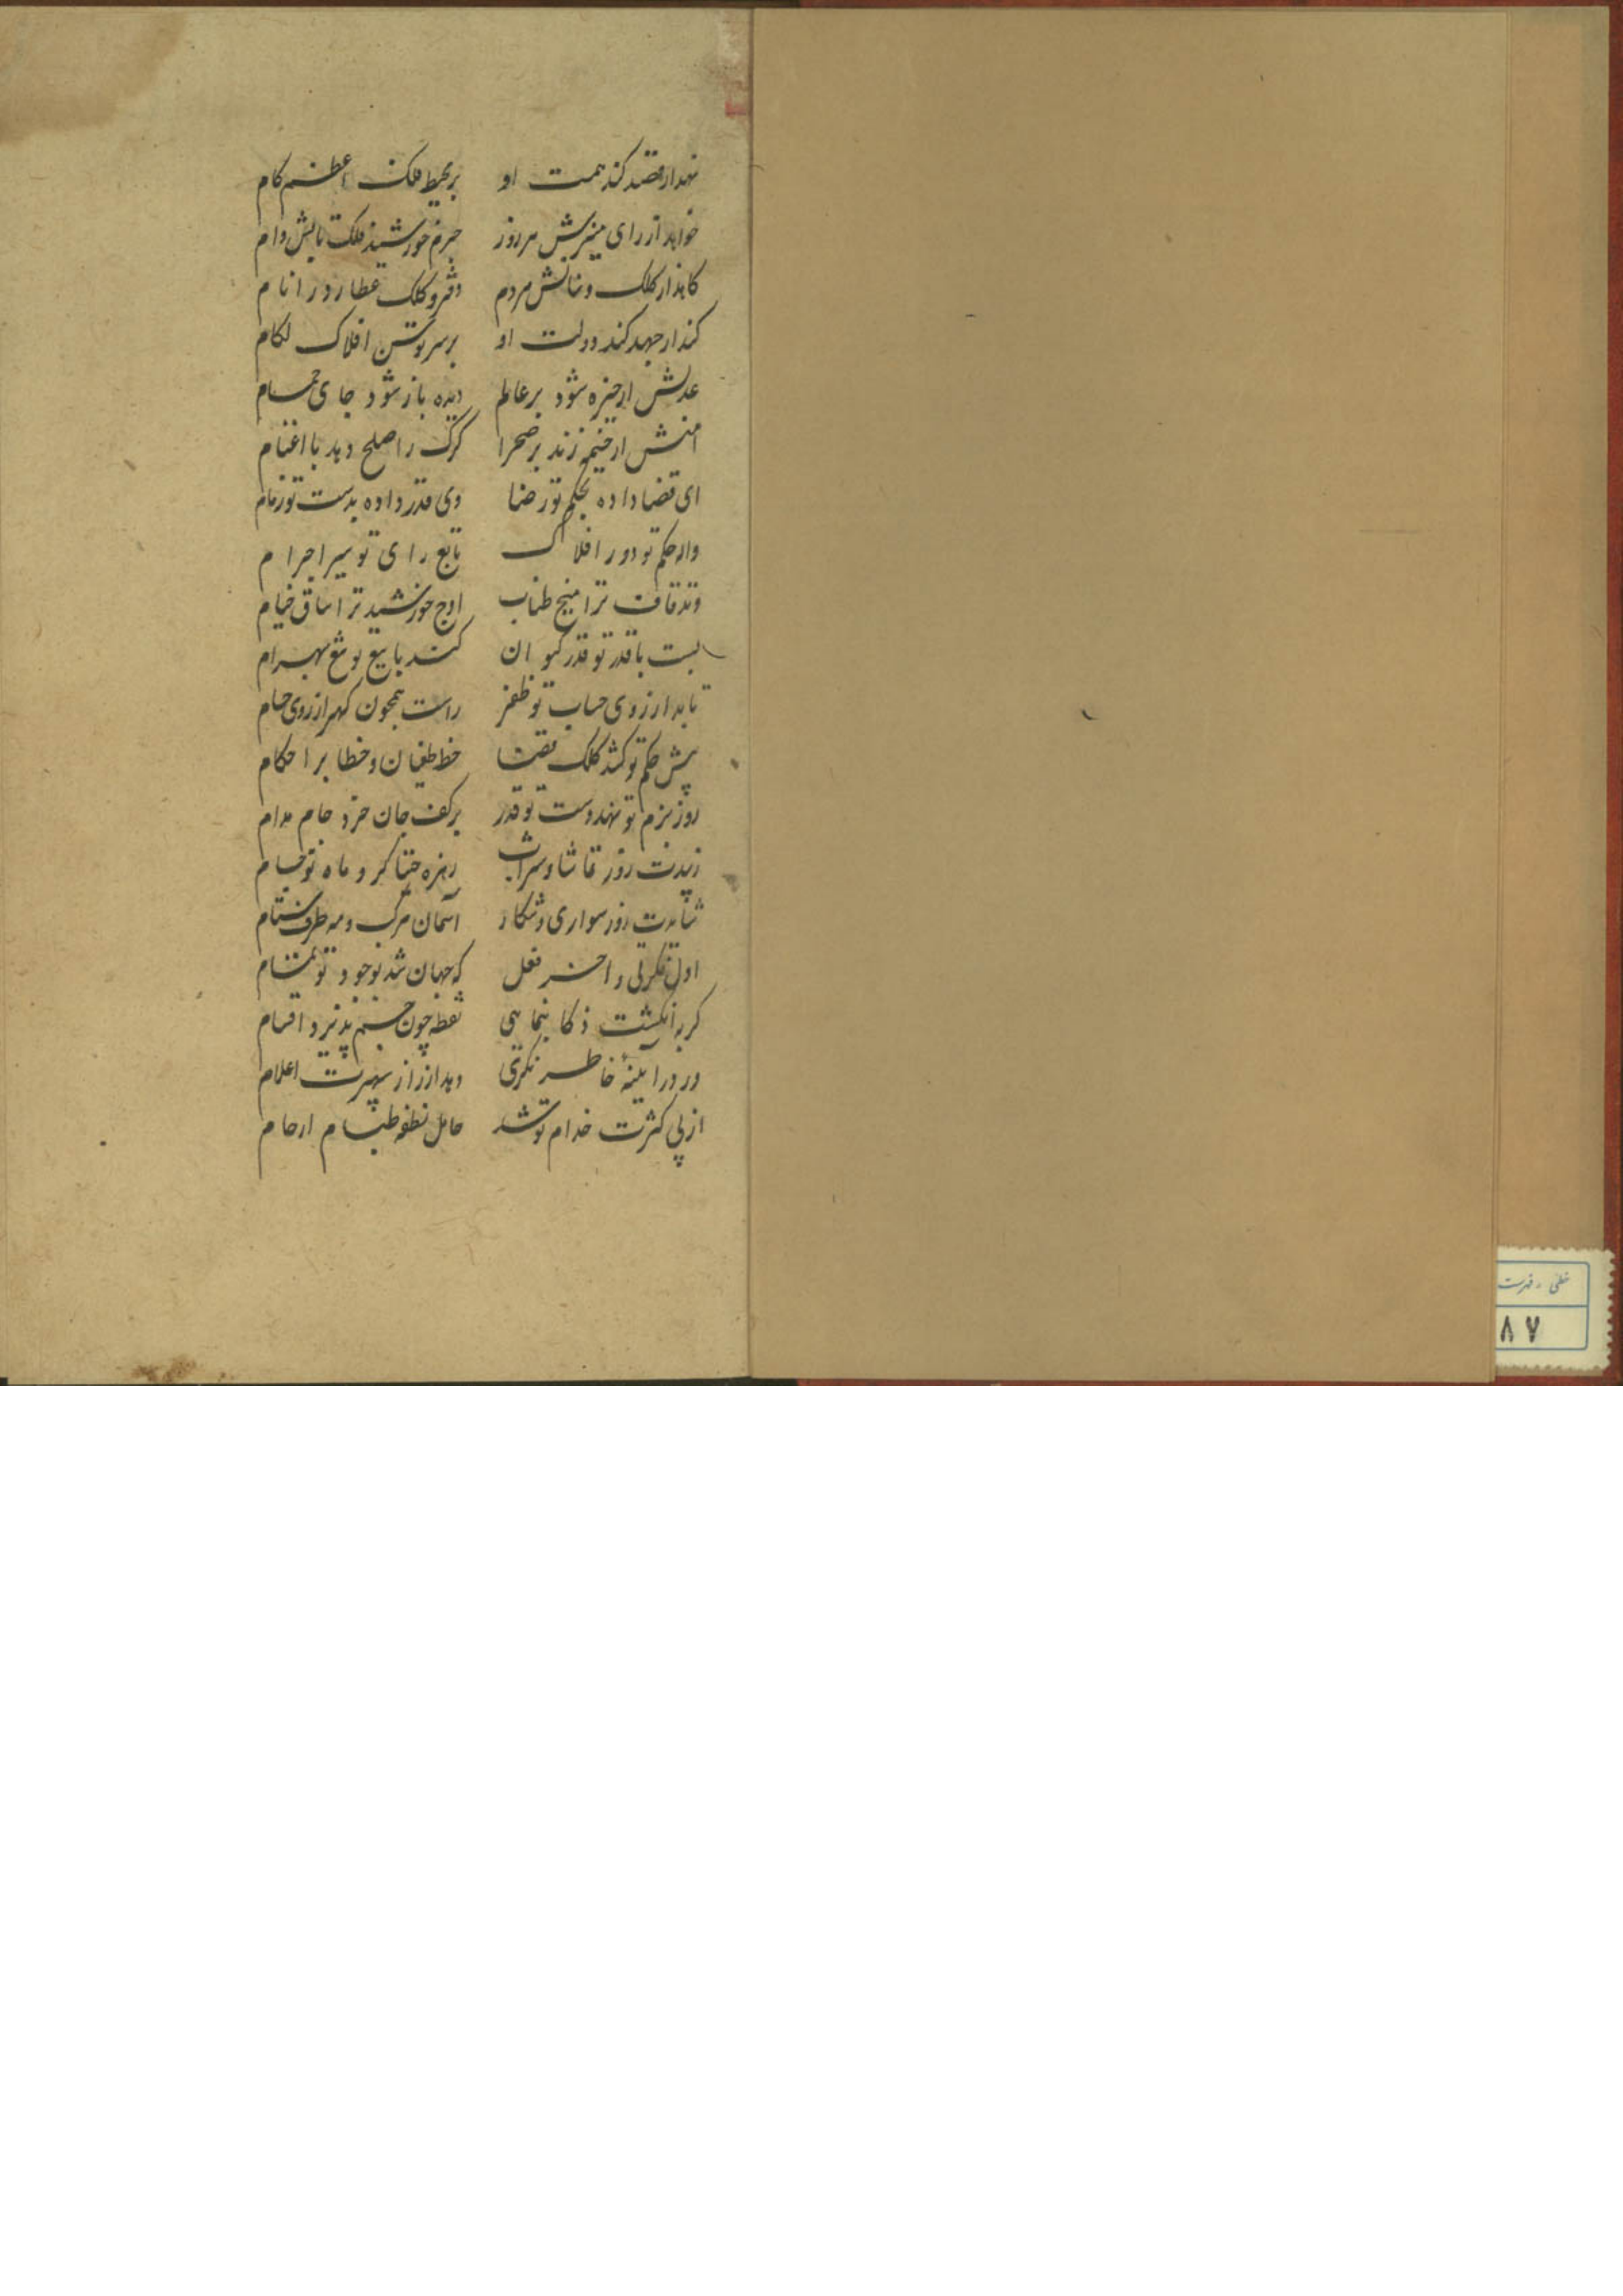 نهد ار قصد کند همت او بر محیط فلک اعظم کام
خواهد از رای منیرش هر روز جرم خورشید فلک تابش وام
کاهد ار کلک و بنانش مردم دفتر و کلک عطارد را نام
کند ار جهد کند دولت او بر سر توسن افلاک لکام
عدلش ار خیره شود بر عالم دیده باز شود جای حمام
امنش ار خیمه زند بر صحرا کرک را صلح دهد با اغنام
ای قضا داده بحکم تو رضا وی قدر داده بدست تو زمام
واله حکم تو دور افلاک تابع رای تو سیر اجرام
وتد قاف ترا میخ طناب اوج خورشید ترا ساق خیام
پست با قدر تو قدر کیوان کند با تیغ تو تیغ بهرام
تابد از روی حساب تو ظفر راست همچون کهر از روی حسام
پیش حکم تو کشد کلک قضا خط طغیان و خطا بر احکام
روز بزم تو نهد دست قدر بر کف جان خرد جام مدام
زیبدت روز تماشا و شراب زهره خنیاکر و ماه نو جام
شایدت روز سواری و شکار آسمان مرکب و مه طرف ستام
اول فکرتی و آخر فعل که جهان شد بوجود تو تمام
کر به انکشت ذکا بنمایی نقطه چون جسم پذیرد اقسام
ور در آیینهٔ خاطر نکری دهد از راز سپهرت اعلام
از پی کثرت خدام تو شد حامل نطفه طباع ارحام
خطی ـ فهرست
۸۷